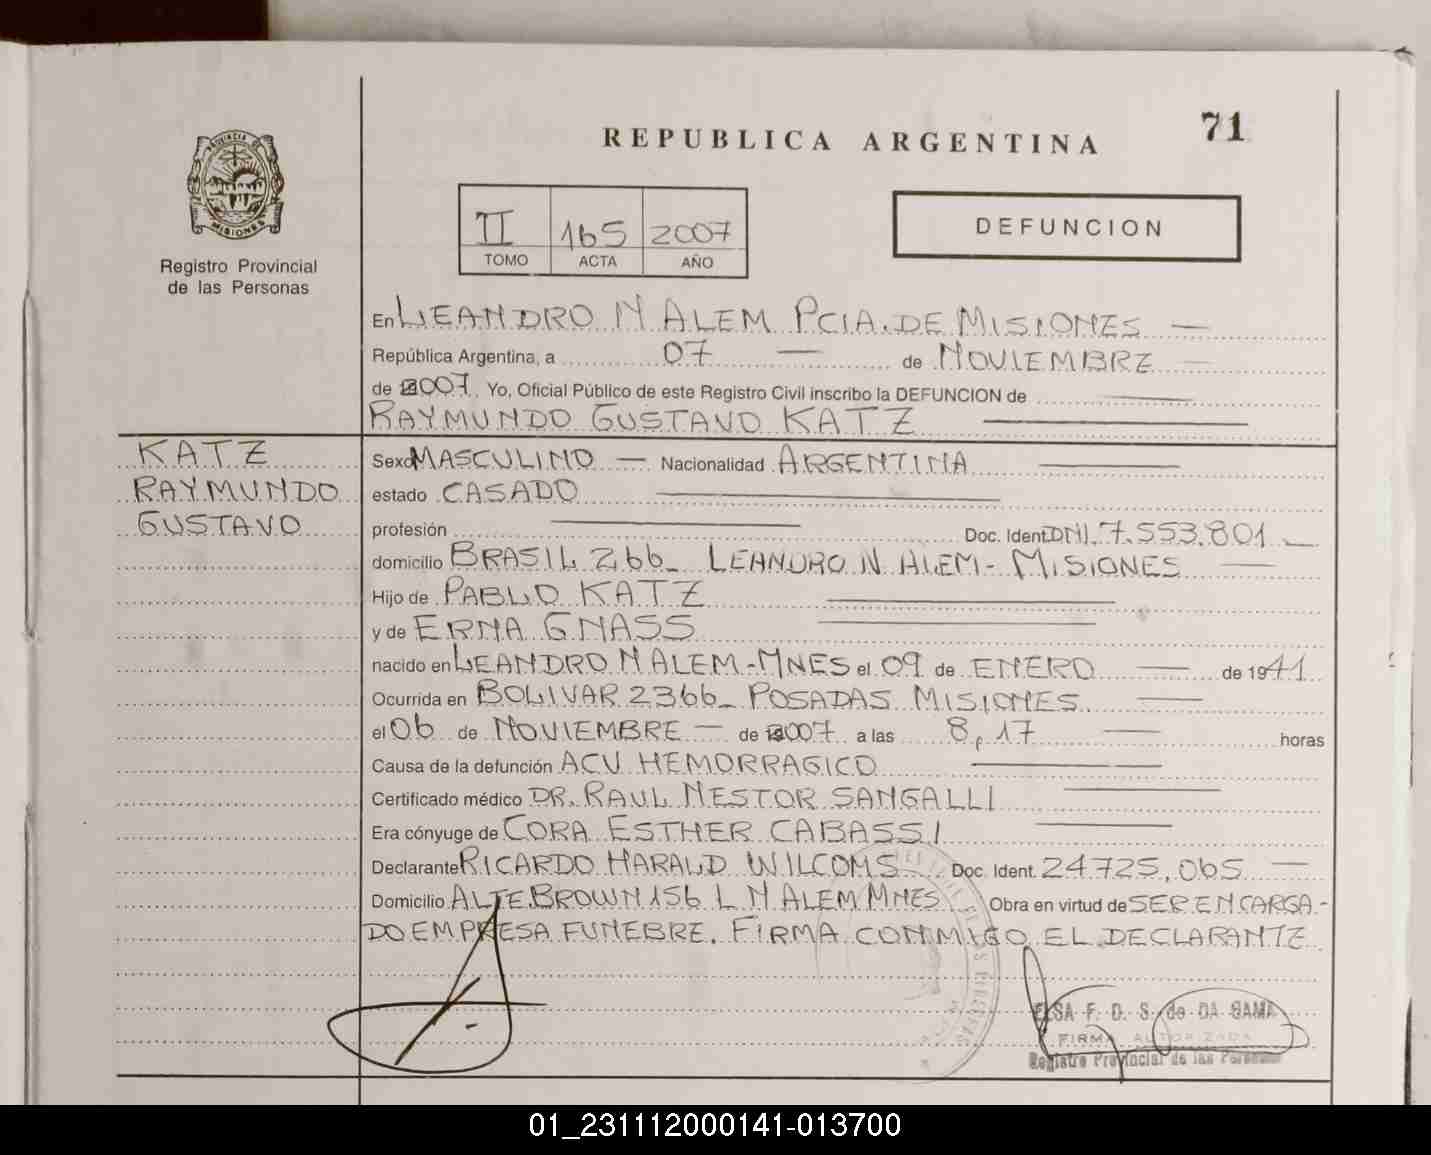 71
REPUBLICA ARGENTINA
PROVINCIA DE
MISIONES
Registro Provincial
de las Personas
II 165 2007
TOMO ACTA AÑO
DEFUNCION
En LEANDRO N ALEM PCIA. DE MISIONES —
República Argentina, a 07 — de NOVIEMBRE —
de 2007. Yo, Oficial Público de este Registro Civil inscribo la DEFUNCION de
RAYMUNDO GUSTAVO KATZ
KATZ
RAYMUNDO
GUSTAVO
Sexo MASCULINO — Nacionalidad ARGENTINA
estado CASADO
profesión Doc. Ident. DNI. 7.553.801
domicilio BRASIL 266_ LEANDRO N ALEM- MISIONES
Hijo de PABLO KATZ
y de ERNA GNASS
nacido en LEANDRO N ALEM-MNES el 09 de ENERO — de 1941
Ocurrida en BOLIVAR 2366_ POSADAS MISIONES
el 06 de NOVIEMBRE — de 2007 a las 8,17 horas
Causa de la defunción ACV HEMORRAGICO
Certificado médico DR. RAUL NESTOR SANGALLI
Era cónyuge de CORA ESTHER CABASSI
Declarante RICARDO HARALD WILCOMS Doc. Ident. 24.725.065 —
Domicilio ALTE BROWN 156 L N ALEM MNES Obra en virtud de SER ENCARGA-
DO EMPRESA FUNEBRE. FIRMA CONMIGO EL DECLARANTE
ELSA F. D. S. de DA GAMA
FIRMA AUTORIZADA
Registro Provincial de las Personas
01_231112000141-013700